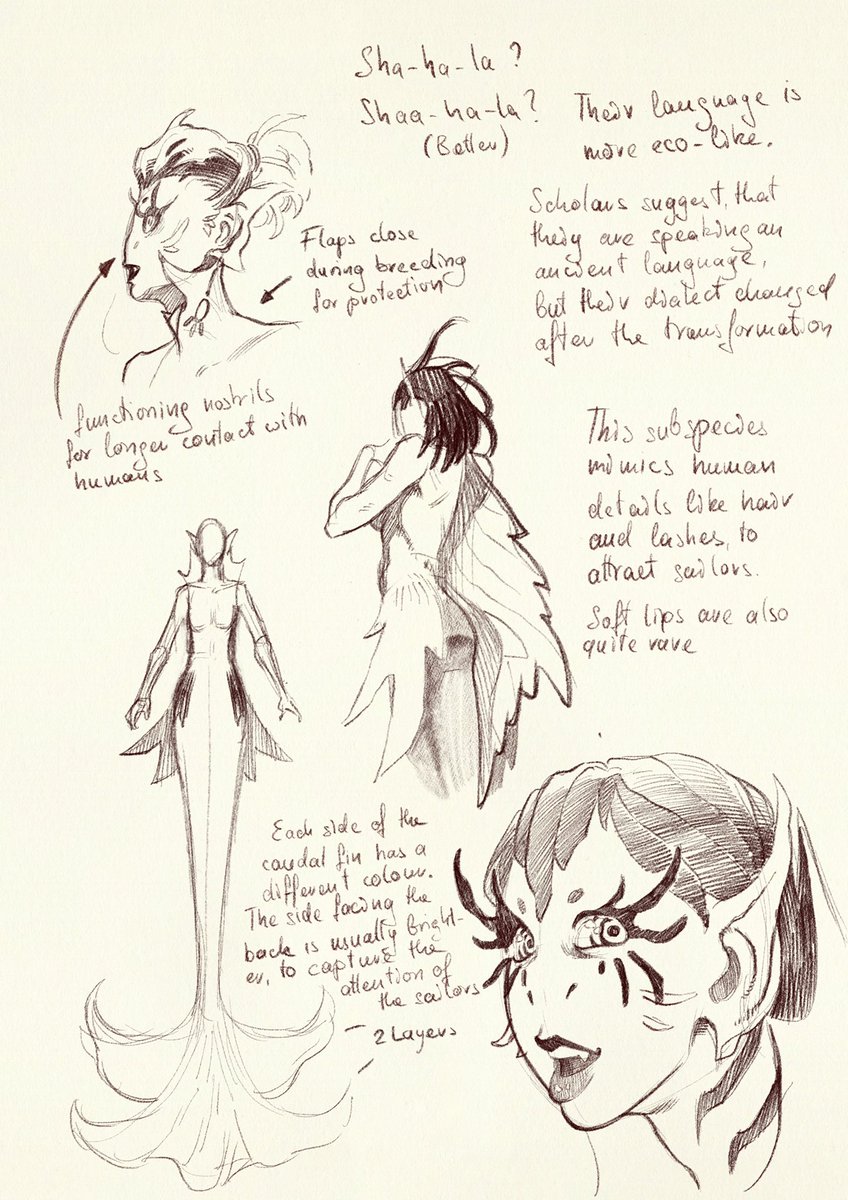 Sha-ha-la?
Shaa-ha-la?
(Better)
Their language is
more eco-like.
Scholars suggest, that
they are speaking an
ancient language,
but their dialect changed
after the transformation
Flaps close
during breeding
for protection
functioning nostrils
for longer contact with
humans
This subspecies
mimics human
details like hair
and lashes, to
attract sailors.
Soft lips are also
quite rare
Each side of the
caudal fin has a
different colour.
The side facing the
back is usually bright-
er, to capture the
attention of
the sailors
2 Layers